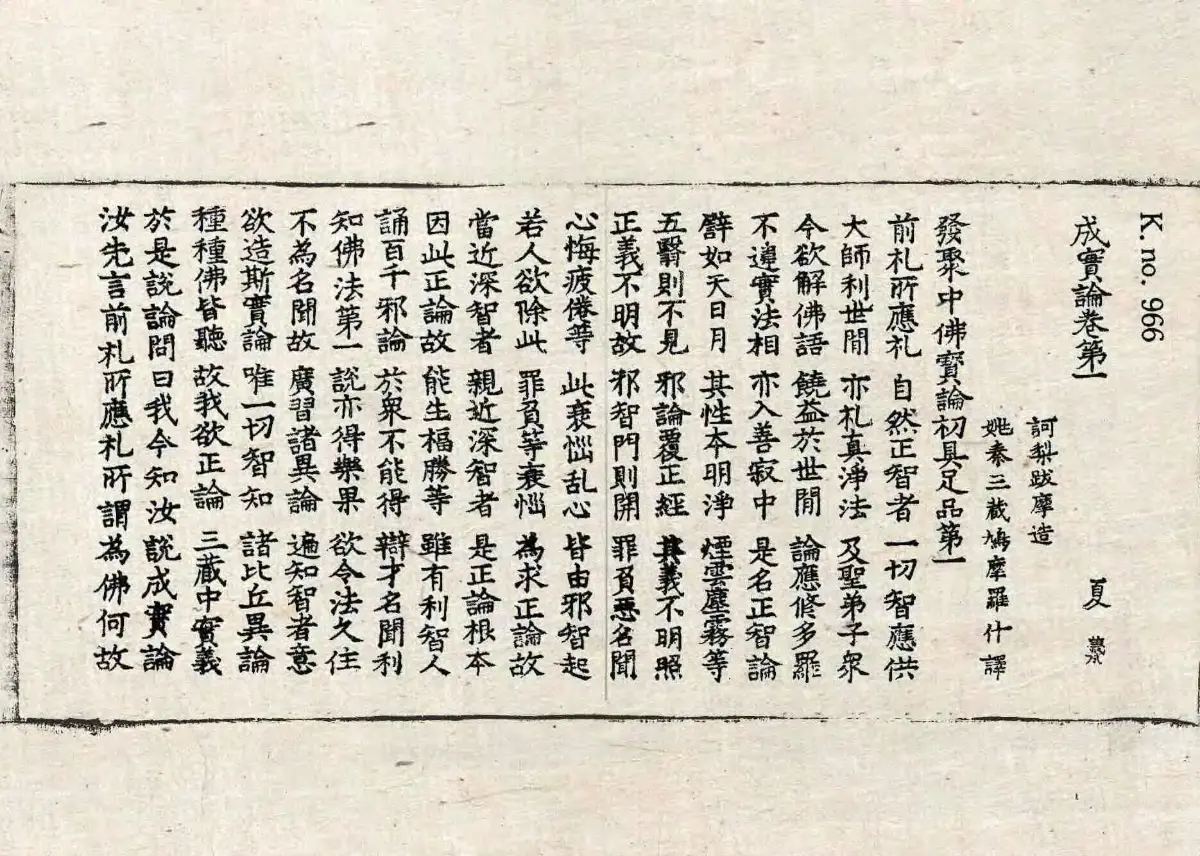 K. no. 966
成實論卷第一
夏
訶梨跋摩造
姚秦三藏鳩摩羅什譯
發聚中佛寶論初具足品第一
前礼所應礼 自然正智者 一切智應供
大師利世間 亦礼真淨法 及聖弟子衆
今欲解佛語 饒益於世間 論應修多羅
不違實法相 亦入善寂中 是名正智論
譬如天日月 其性本明淨 煙雲塵霧等
五翳則不見 邪論覆正經 其義不明照
正義不明故 邪智門則開 罪負惡名聞
心悔疲倦等 此衰惱乱心 皆由邪智起
若人欲除此 罪負等衰惱 為求正論故
當近深智者 親近深智者 是正論根本
因此正論故 能生福勝等 雖有利智人
誦百千邪論 於衆不能得 辯才名聞利
知佛法第一 說亦得樂果 欲令法久住
不為名聞故 廣習諸異論 遍知智者意
欲造斯實論 唯一切智知 諸比丘異論
種種佛皆聽 故我欲正論 三藏中實義
於是說論問曰我今知汝說成實論
汝先言前礼所應礼所謂為佛何故